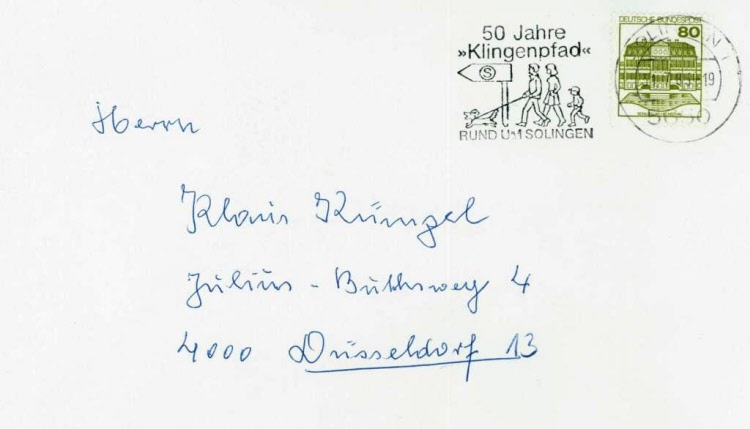 50 Jahre
»Klingenpfad«
S
RUND UM SOLINGEN
DEUTSCHE BUNDESPOST
80
SOLINGEN 1
5650
Herrn
Klaus Künzel
Julius-Buthsweg 4
4000 Düsseldorf 13